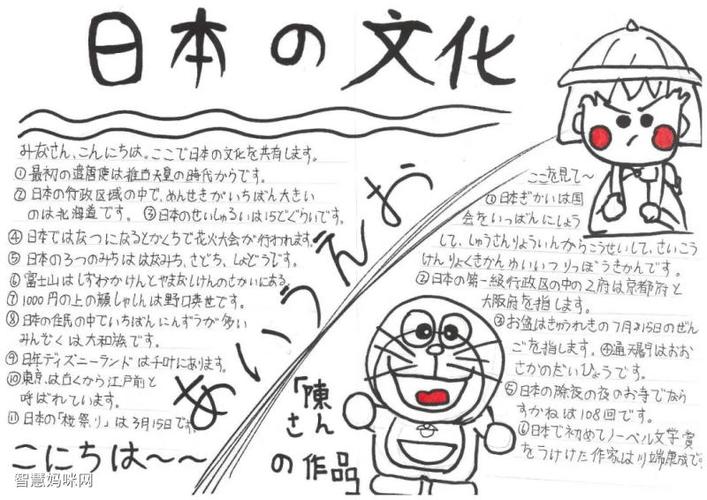 日本の文化
みなさん、こんにちは。ここで日本の文化を共有します。
①最初の遣唐使は推古天皇の時代からです。
②日本の行政区域の中で、めんせきがいちばん大きい
のは北海道です。③日本のせいしゅるいは15どぐらいです。
④日本ではなつになるとかくちで花火大会が行われます。
⑤日本の3つのみちははなみち、さどう、しょどうです。
⑥富士山はしずおかけんとやまなしけんのさかいにある。
⑦1000円の上の顔しゃしんは野口英世です。
⑧日本の住民の中でいちばんにんずうが多い
みんぞくは大和族です。
⑨日本ディズニーランドは千叶にあります。
⑩東京は古くから江戸前と
呼ばれています。
⑪日本の「桜祭り」は3月15日です
こにちは〜〜
あいうえお
ここを見て〜
①日本ぎかいは国
会をいっぱんにしょう
して、しゅうさんりょういんからこうせいして、さいこう
けんりょくきかんゆいいつりっぽうきかんです。
②日本の第一級行政区の中の2府は京都府と
大阪府を指します。
③お盆はきゅうれきの7月15日のぜん
ごを指します。④通天閣はおお
さかのだいひょうです。
⑤日本の除夜の夜のお寺でなら
すかねは108回です。
⑥日本で初めてノーベル文学賞
をうけた作家は川端康成で。
「陳さん
の作品」
智慧妈咪网